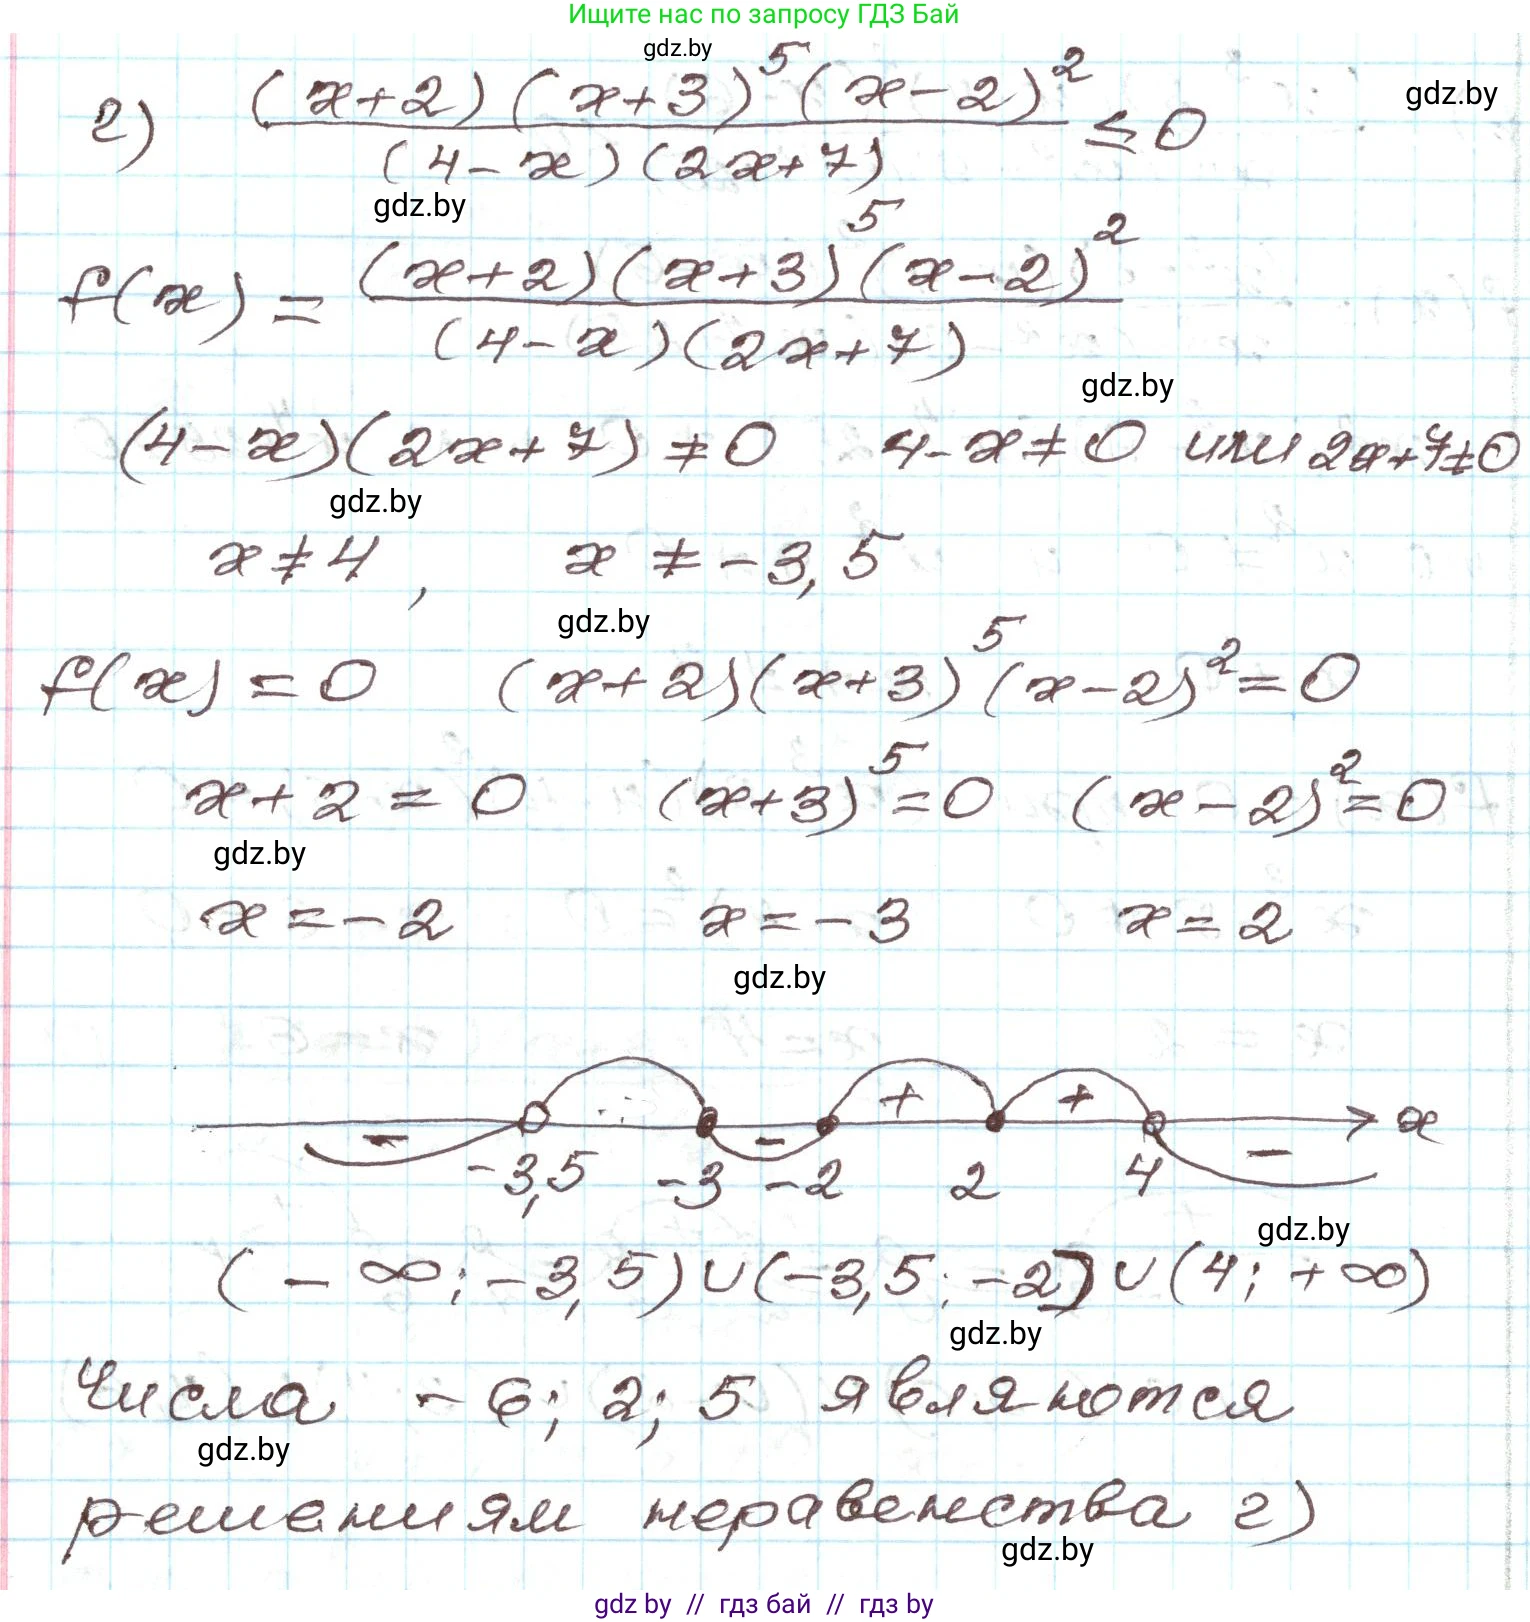 Ищите нас по запросу ГДЗ Бай
gdz.by
г) (x+2)(x+3)^5(x-2)^2 / (4-x)(2x+7) ≤ 0
gdz.by
gdz.by
f(x) = (x+2)(x+3)^5(x-2)^2 / (4-x)(2x+7)
gdz.by
(4-x)(2x+7) ≠ 0 4-x ≠ 0 или 2x+7 ≠ 0
gdz.by
x ≠ 4, x ≠ -3,5
gdz.by
f(x) = 0 (x+2)(x+3)^5(x-2)^2 = 0
x+2 = 0 (x+3)^5 = 0 (x-2)^2 = 0
gdz.by
x = -2 x = -3 x = 2
gdz.by
- - + + - x
-3,5 -3 -2 2 4
gdz.by
(-∞; -3,5) ∪ (-3,5; -2] ∪ (4; +∞)
gdz.by
Числа -6; 2; 5 являются
gdz.by
решениям неравенства г)
gdz.by
gdz by // гдз бай // гдз by